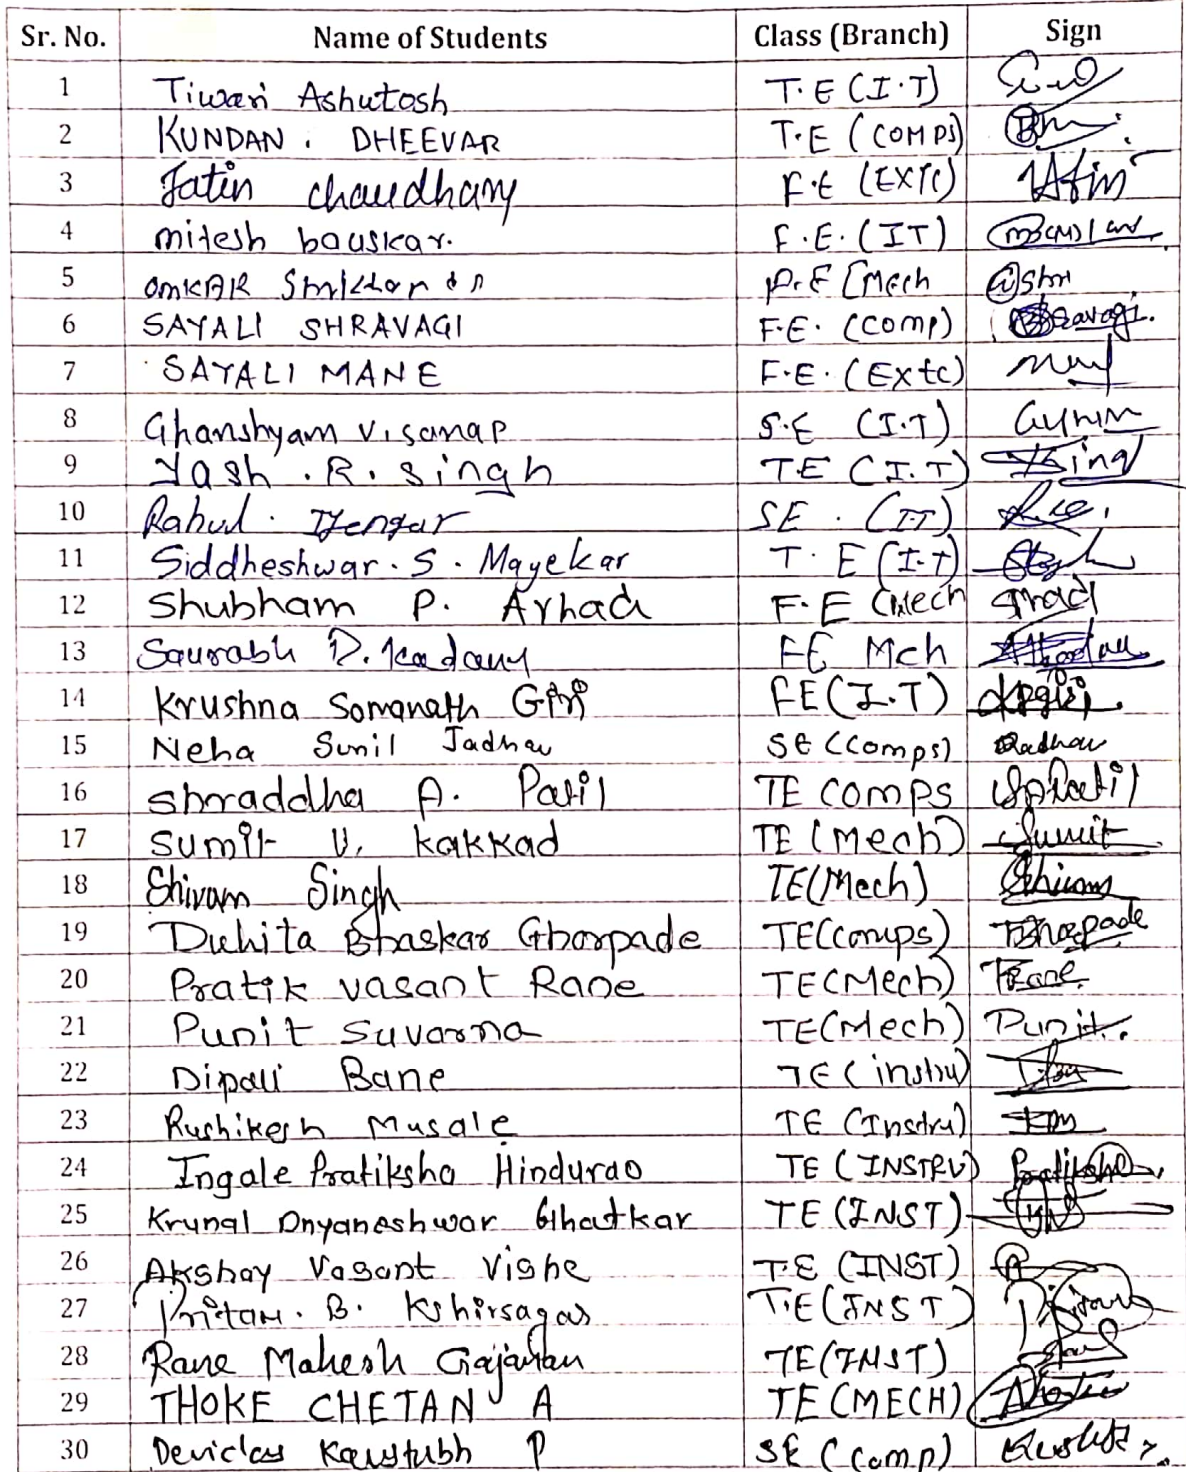 Sr. No. Name of Students Class (Branch) Sign
1 Tiwari Ashutosh T.E (I.T)
2 KUNDAN . DHEEVAR T.E (COMPS)
3 Jatin chaudhary F.E (EXTC) Jatin
4 mitesh bauskar. F.E. (IT)
5 OMKAR [Mech
6 SAYALI SHRAVAGI F.E. (comp)
7 SAYALI MANE F.E. (Extc)
8 Ghanshyam V. sanap S.E (I.T)
9 Yash . R. singh TE (I.T) Singh
10 Rahul . Iyengar SE . (IT)
11 Siddheshwar . S . Mayekar T. E (I.T)
12 Shubham P. Arhad F.E (Mech
13 Saurabh D. FE Mch
14 Krushna Somanath Giri FE (I.T)
15 Neha Sunil Jadhav SE (Comps) Jadhav
16 shraddha A. Patil TE comps SAPatil
17 Sumit V. kakkad TE (Mech) Sumit
18 Shivam Singh TE(Mech) Shivam
19 Duhita Bhaskar Ghorpade TE(comps) Ghorpade
20 Pratik vasant Rane TE(Mech) Rane
21 Punit Suvarna TE(Mech) Punit.
22 Dipali Bane TE (instru)
23 Rushikesh Musale TE (Instru)
24 Ingale Pratiksha Hindurao TE (INSTRU) Pratiksha
25 Krunal Dnyaneshwar Ghatkar TE (INST)
26 Akshay Vasant Vishe T.E (INST)
27 Pritam . B. Kshirsagar T.E (INST)
28 Rane Mahesh Gajanan TE (INST)
29 THOKE CHETAN A TE (MECH)
30 Devidas Kaustubh P SE (comp)